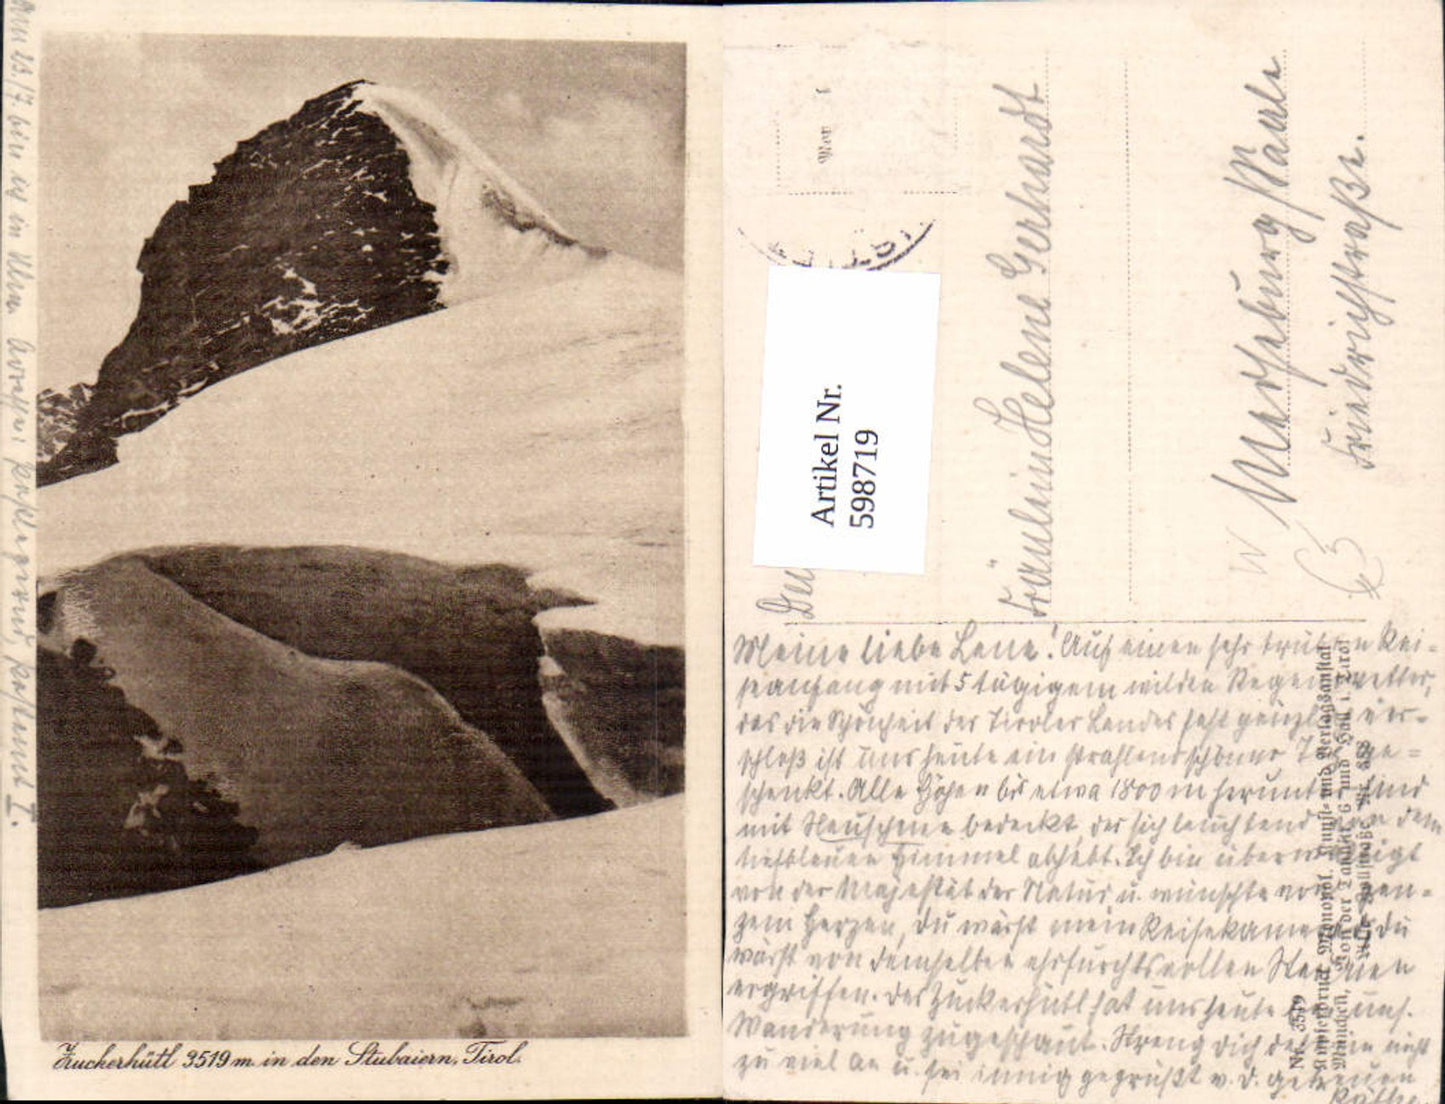 Am 23./7. bin ich in Ulm
Postamt I.
Zuckerhütl 3519 m in den Stubaiern, Tirol.
Artikel Nr.
598719
Fräulein Helene Gerhardt
Merseburg / Saale
Friedrichstraße.
Meine liebe Lene! Auf einen sehr trüben Rei-
seanfang mit 5 tägigem wilden Regenwetter,
das die Schönheit des Tiroler Landes fast gänzlich ver-
schloß ist uns heute ein strahlendschöner Tag ge-
schenkt. Alle Höhen bis etwa 1800 m herunter sind
mit Neuschnee bedeckt, der sich leuchtend von dem
tiefblauen Himmel abhebt. Ich bin überwältigt
von der Majestät der Natur u. wünschte von gan-
zem Herzen, du wärst mein Reisekamerad, du
wärst von demselben ehrfurchtsvollen Staunen
ergriffen. Das Zuckerhütl hat uns heute
Wanderung zugeschaut. Streng dich
zu viel an u. sei innig gegrüßt v. d. getreuen
Käthe.
Nr. 3519
Kupferdruck Monopol, Kunst- und Verlagsanstalt
München, Hall i. Tirol